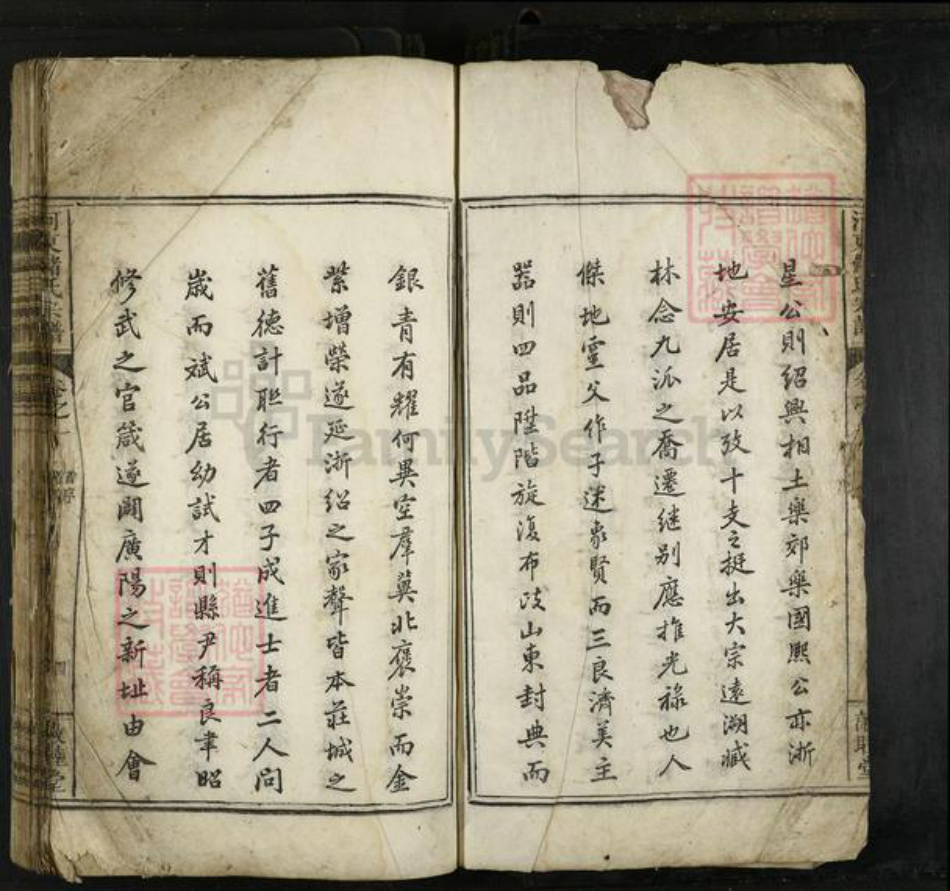 星公則紹興相土樂郊樂國熙公亦浙
地安居是以攷十支之挺出大宗遠溯臧
林念九派之喬遷継别應推光禄也人
傑地靈父作子述象賢而三良濟美主
器則四品陞階旋復布政山東封典而
銀青有耀何異空羣冀北褒崇而金
紫增榮遂延浙紹之家聲皆本莊城之
舊德計聀行者四子成進士者二人问
歳而斌公居幼試才則縣尹稱良聿昭
修武之官箴遂闢廣陽之新址由會
河東
氏宗譜
FamilySearch